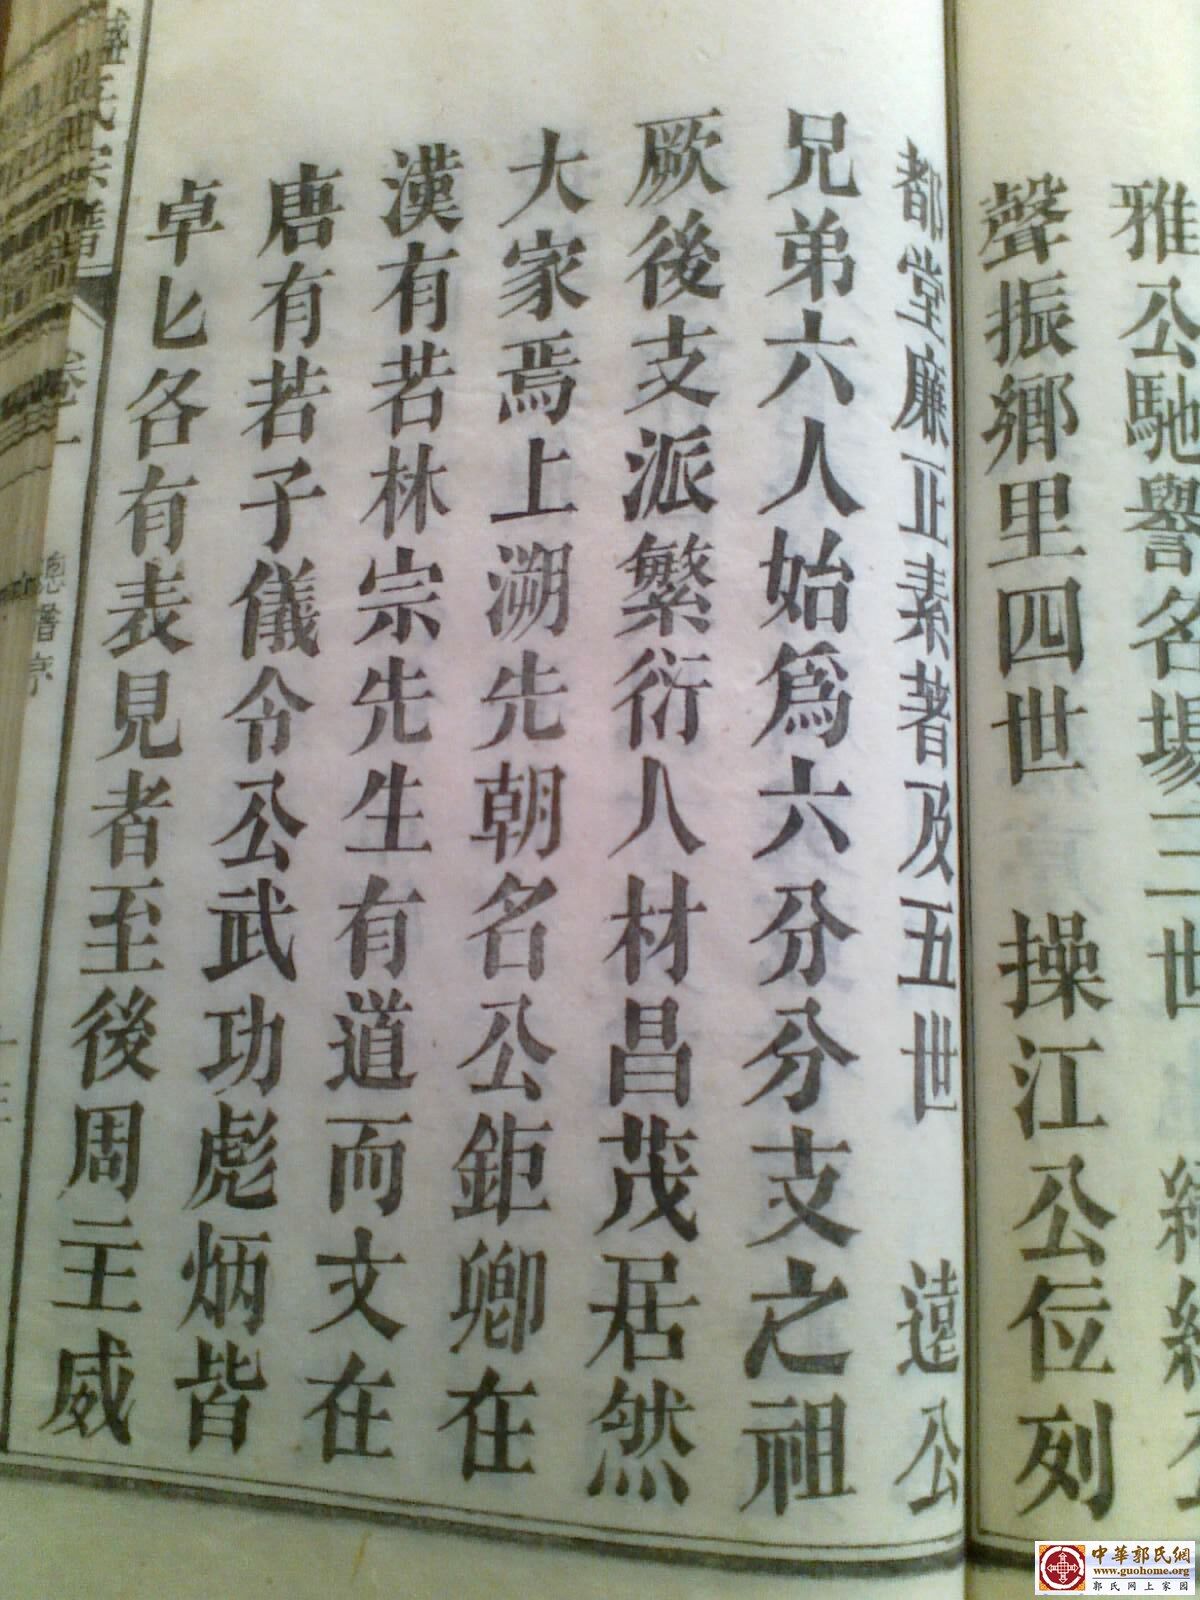 雅公馳譽名場三世
聲振鄉里四世　操江公位列
都堂廉正素著及五世　遠公
兄弟六人始爲六分分支之祖
厥後支派繁衍人材昌茂居然
大家焉上溯先朝名公鉅卿在
漢有若林宗先生有道而文在
唐有若子儀令公武功彪炳皆
卓匕各有表見者至後周主威
氏宗譜
卷一
中華郭氏網
www.guohome.org
郭氏网上家园